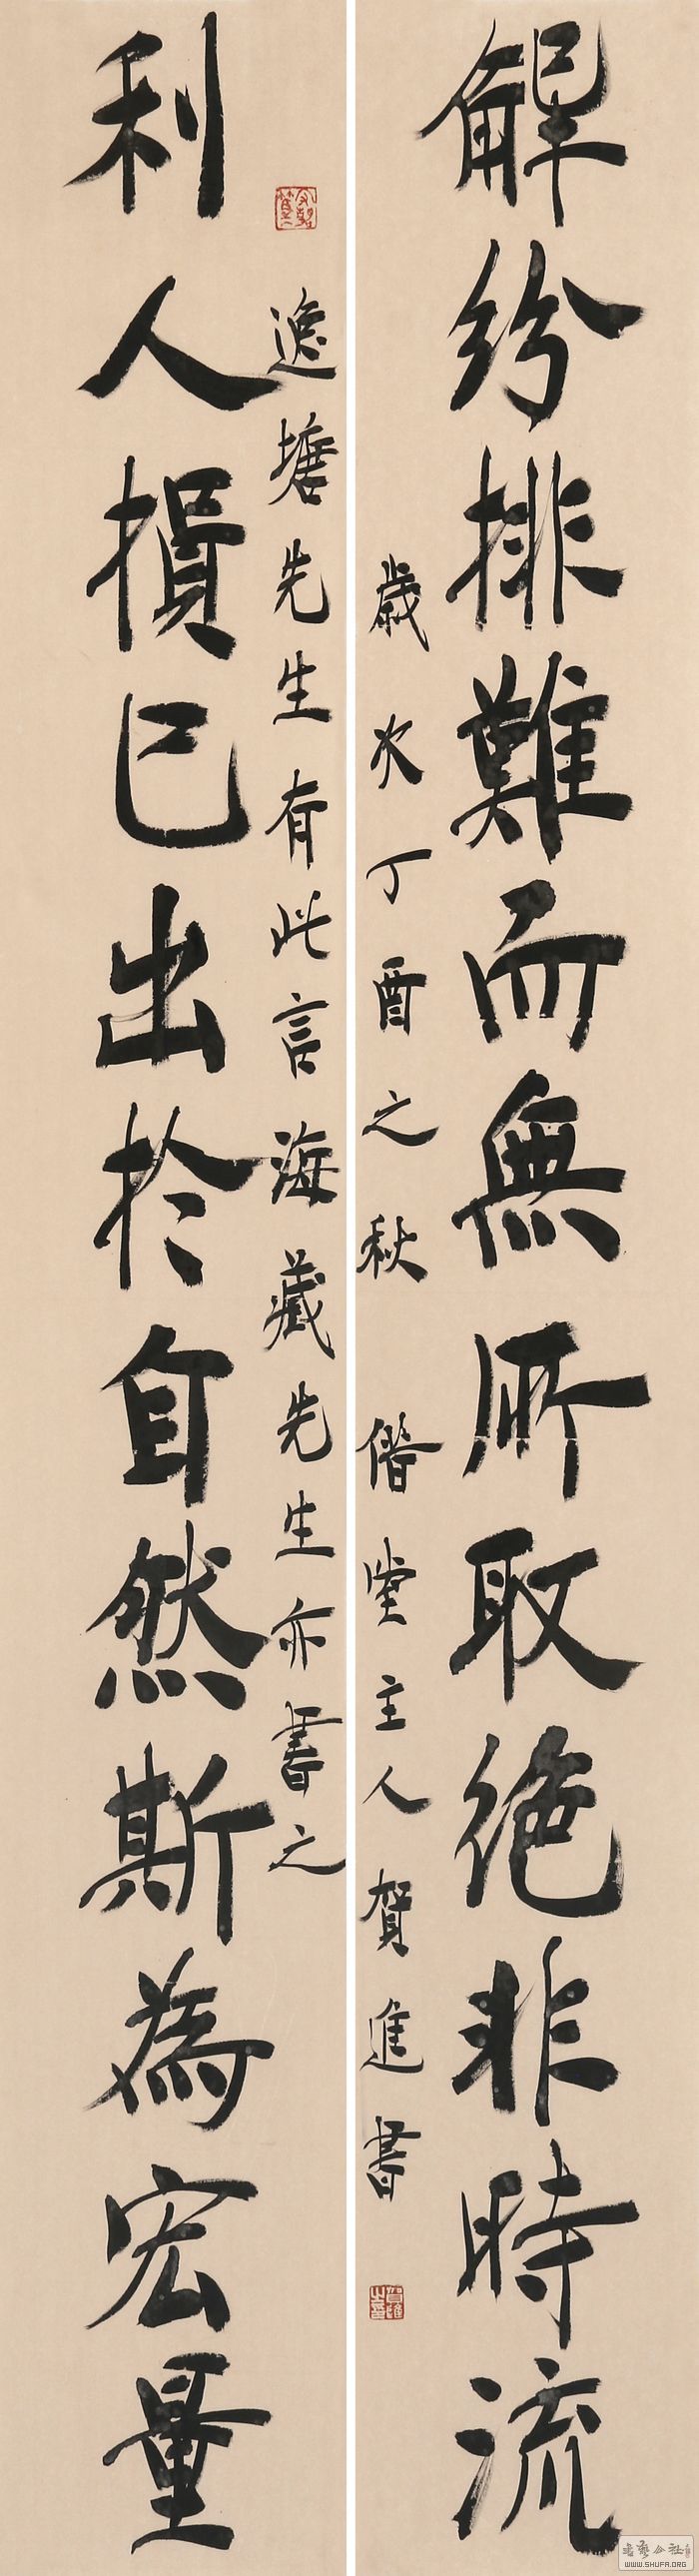 解紛排難而無所取絕非時流
歲次丁酉之秋 堂主人賀進書
逸塘先生有此言海藏先生亦書之
利人損己出於自然斯為宏量
書藝公社
WWW.SHUFA.ORG